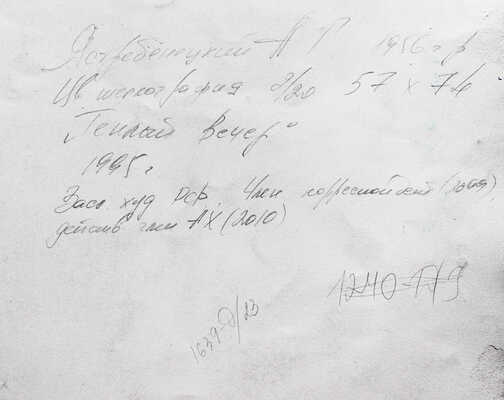 Ястребенецкий А Г 1956 г р
Цв шелкография 9/20 57 х 74
"Теплый вечер"
1995 г
Засл. худ РФ. Член корреспондент (2009),
действ член АХ (2010)
1240-Г/9
1639-д/23